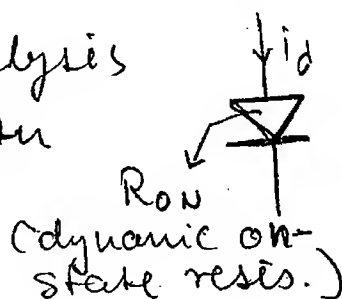 lysis
id
RON
(dynamic on-
state resis.)